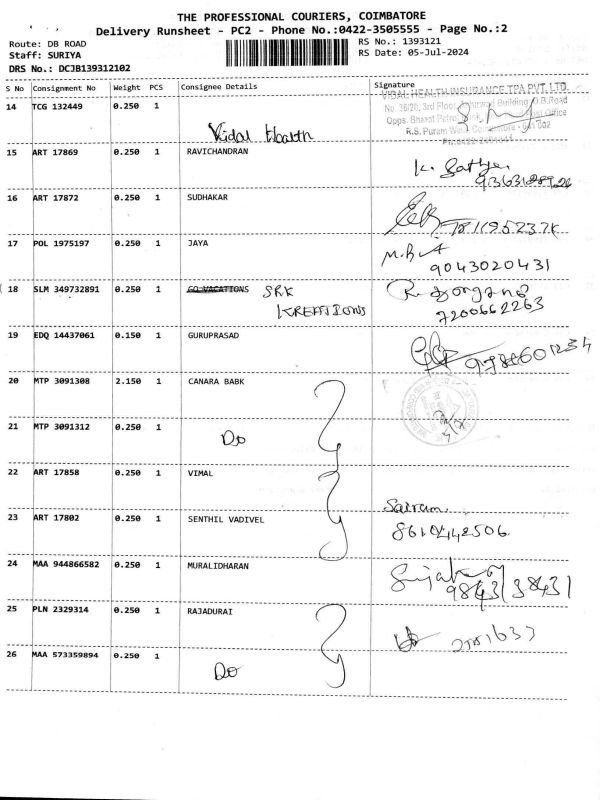 THE PROFESSIONAL COURIERS, COIMBATORE
Delivery Runsheet - PC2 - Phone No.:0422-3505555 - Page No.:2
Route: DB ROAD RS No.: 1393121
Staff: SURIYA RS Date: 05-Jul-2024
DRS No.: DCJB139312102
S No Consignment No Weight PCS Consignee Details Signature
VIDAL HEALTH INSURANCE TPA PVT. LTD
14 TCG 132449 0.250 1
No. 36/20, 3rd Floor, Building D.B.Road
Opps. Bharat Office
Vidal Health R.S. Puram West Coimbatore - 002
15 ART 17869 0.250 1 RAVICHANDRAN
K. Sathya
16 ART 17872 0.250 1 SUDHAKAR
17 POL 1975197 0.250 1 JAYA
9043020431
18 SLM 349732891 0.250 1 GO VACATIONS SRK
KREATIONS 7200662263
19 EDQ 14437061 0.150 1 GURUPRASAD
20 MTP 3091308 2.150 1 CANARA BABK
21 MTP 3091312 0.250 1
Do
22 ART 17858 0.250 1 VIMAL
Sairam
23 ART 17802 0.250 1 SENTHIL VADIVEL
8610442506
24 MAA 944866582 0.250 1 MURALIDHARAN
9843138431
25 PLN 2329314 0.250 1 RAJADURAI
26 MAA 573359894 0.250 1
Do